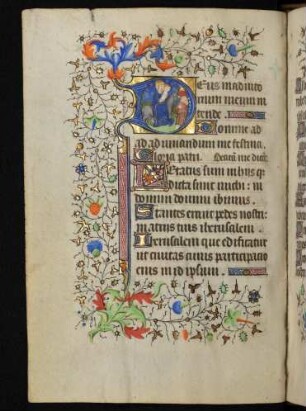 Deus in adiuto
rium meum in
tende. Domine ad
ad adiuuandum me festina.
Gloria patri.
Letatus sum in hys q
dicta sunt michi: in
domum domini ibimus.
Stantes erant pedes nostri:
in atrijs tuis iherusalem.
Iherusalem que edificatur
ut ciuitas cuius participatio
eius in id ipsum.